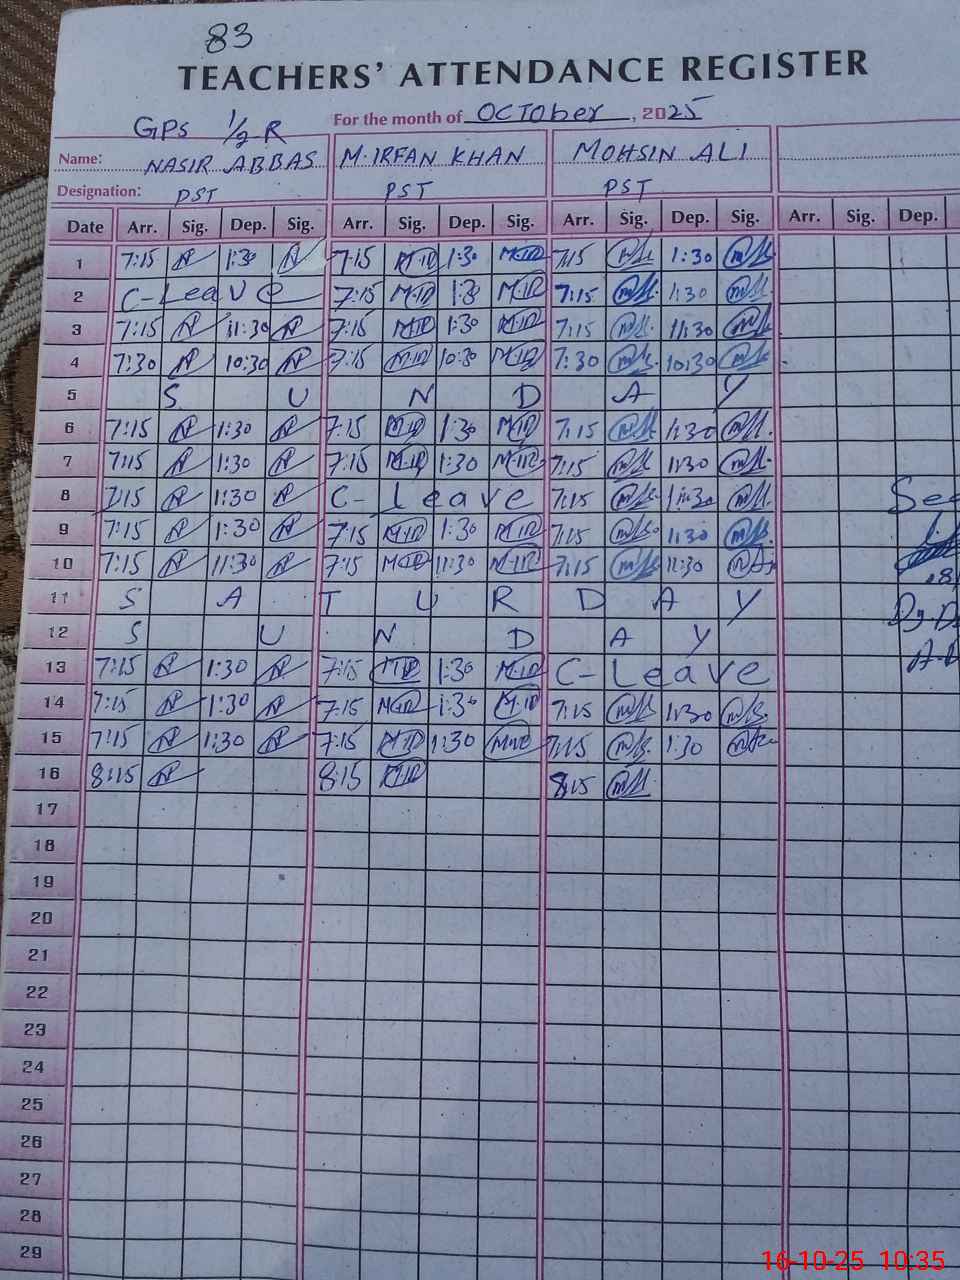 83
TEACHERS' ATTENDANCE REGISTER
GPS 1/2 R For the month of October, 2025
Name: NASIR ABBAS M. IRFAN KHAN MOHSIN ALI
Designation: PST PST PST
Date Arr. Sig. Dep. Sig. Arr. Sig. Dep. Sig. Arr. Sig. Dep. Sig. Arr. Sig. Dep.
1 7:15 1:30 7:15 1:30 7:15 1:30
2 C-Leave 7:15 1:30 7:15 1:30
3 7:15 11:30 7:15 1:30 7:15 11:30
4 7:30 10:30 7:15 10:30 7:30 10:30
5 S U N D A Y
6 7:15 1:30 7:15 1:30 7:15 1:30
7 7:15 1:30 7:15 1:30 7:15 1:30
8 7:15 1:30 C-Leave 7:15 1:30 See
9 7:15 1:30 7:15 1:30 7:15 1:30
10 7:15 11:30 7:15 11:30 7:15 11:30
11 S A T U R D A Y
12 S U N D A Y
13 7:15 1:30 7:15 1:30 C-Leave
14 7:15 1:30 7:15 1:30 7:15 1:30
15 7:15 1:30 7:15 1:30 7:15 1:30
16 8:15 8:15 8:15
17
18
19
20
21
22
23
24
25
26
27
28
29
16-10-25 10:35